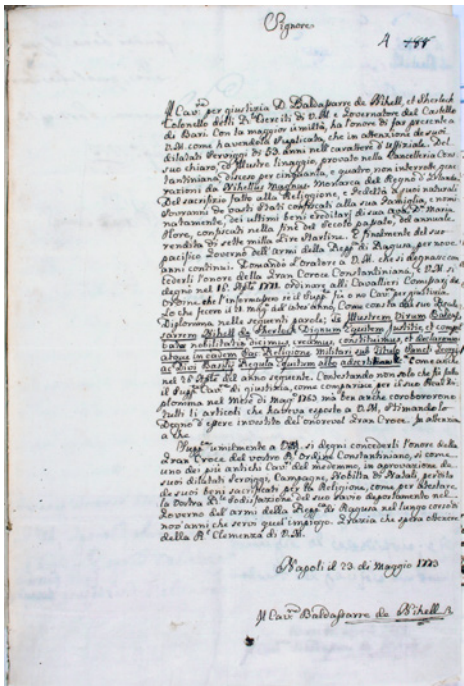 Signore
A 188
Il Cav.re per giustizia D. Baldasarre de Nihell, et Sherlock
Colonello delli R. Eserciti di V.M. e Governatore del Castello
di Bari Con la maggior umiltà, ha l'onore di far presente a
V.M. come havendola Suplicata, che in attenzione de suoi
dilatati Serviggi di 53 anni nel carattere d'uffiziale. Del
suo chiaro, ed Illustre linaggio, provato nella Cancelleria Cons-
tantiniana, disceso per cinquanta, e quatro non interrotte gene-
razioni da Nihellus Magnus Monarca del Regno d'Irlanda
Del sacrificio fatto alla Religgione, e Fedeltà a suoi naturali
Sovranni de vasti Stati confiscati alla sua Famiglia, e nomi-
natamente, dei ultimi beni ereditarj di sua Madre D. Maria
More, confiscati nella fine del secolo passato, del annuale
rendita di sette milia Lire Starline. E finalmente del suo
pacifico Governo dell'armi della Repp.ca di Ragusa, per nove
anni continui. Domandò l'Oratore a V.M. che si degnasse con-
cederli l'onore della Gran Croce Constantiniana, e V.M. si
degnò nel 12 Sett.e 1771. ordinare alli Cavallieri Compari de
ordine, che l'informassero se il Supp.te sia o no Cav.re per giustizia.
Lo che fecero il 21 Mag.o del intes'anno, Come consta dal suo Reale
Diploma nelle seguenti parole; Te Illustrem Virum Baldas-
sarrem Nihell de Sherlock Dignum Equitem Justitiæ, et compro-
batæ nobilitatis dicimus, creamus, constituimus, et declaramus
atque in eadem Sac. Religione Militari sub titulo Sancti Georgii
ac Divi Basilij Regula Equitum albo adscribimus. Come anche
nel 26 Aprile del anno seguente. Contestando non solo che fù fatto
il Supp.te Cav.re di giustizia, come comparisce per il suo Real Di-
ploma nel Mese di Mag.o 1763 mà ben anche corroborarono
tutti li articoli che haveva esposto a V.M, stimandolo
Degno d'essere investito del onorevol Gran Croce. In attenzio-
a che
Supp.ca umilmente a V.M. si degni concederli l'onore della
Gran Croce del vostro R. Ordine Constantiniano, si come
uno dei più antichi Cav.ri del medemmo, in aprovazione de
suoi dilatati Serviggi, Campagne, Nobiltà di Natali, perdita
de suoi beni sacrificati per la Religione, come per attestare
la Vostra R. sodisfazione del suo savio deportamento nel
Governo dell'armi della Repp.ca di Ragusa nel lungo corso di
nov'anni che servì quel'impiego. Grazia che spera ottenere
della R. Clemenza di V.M.
Napoli il 23 di Maggio 1773
Il Cav.re Baldassarre de Nihell